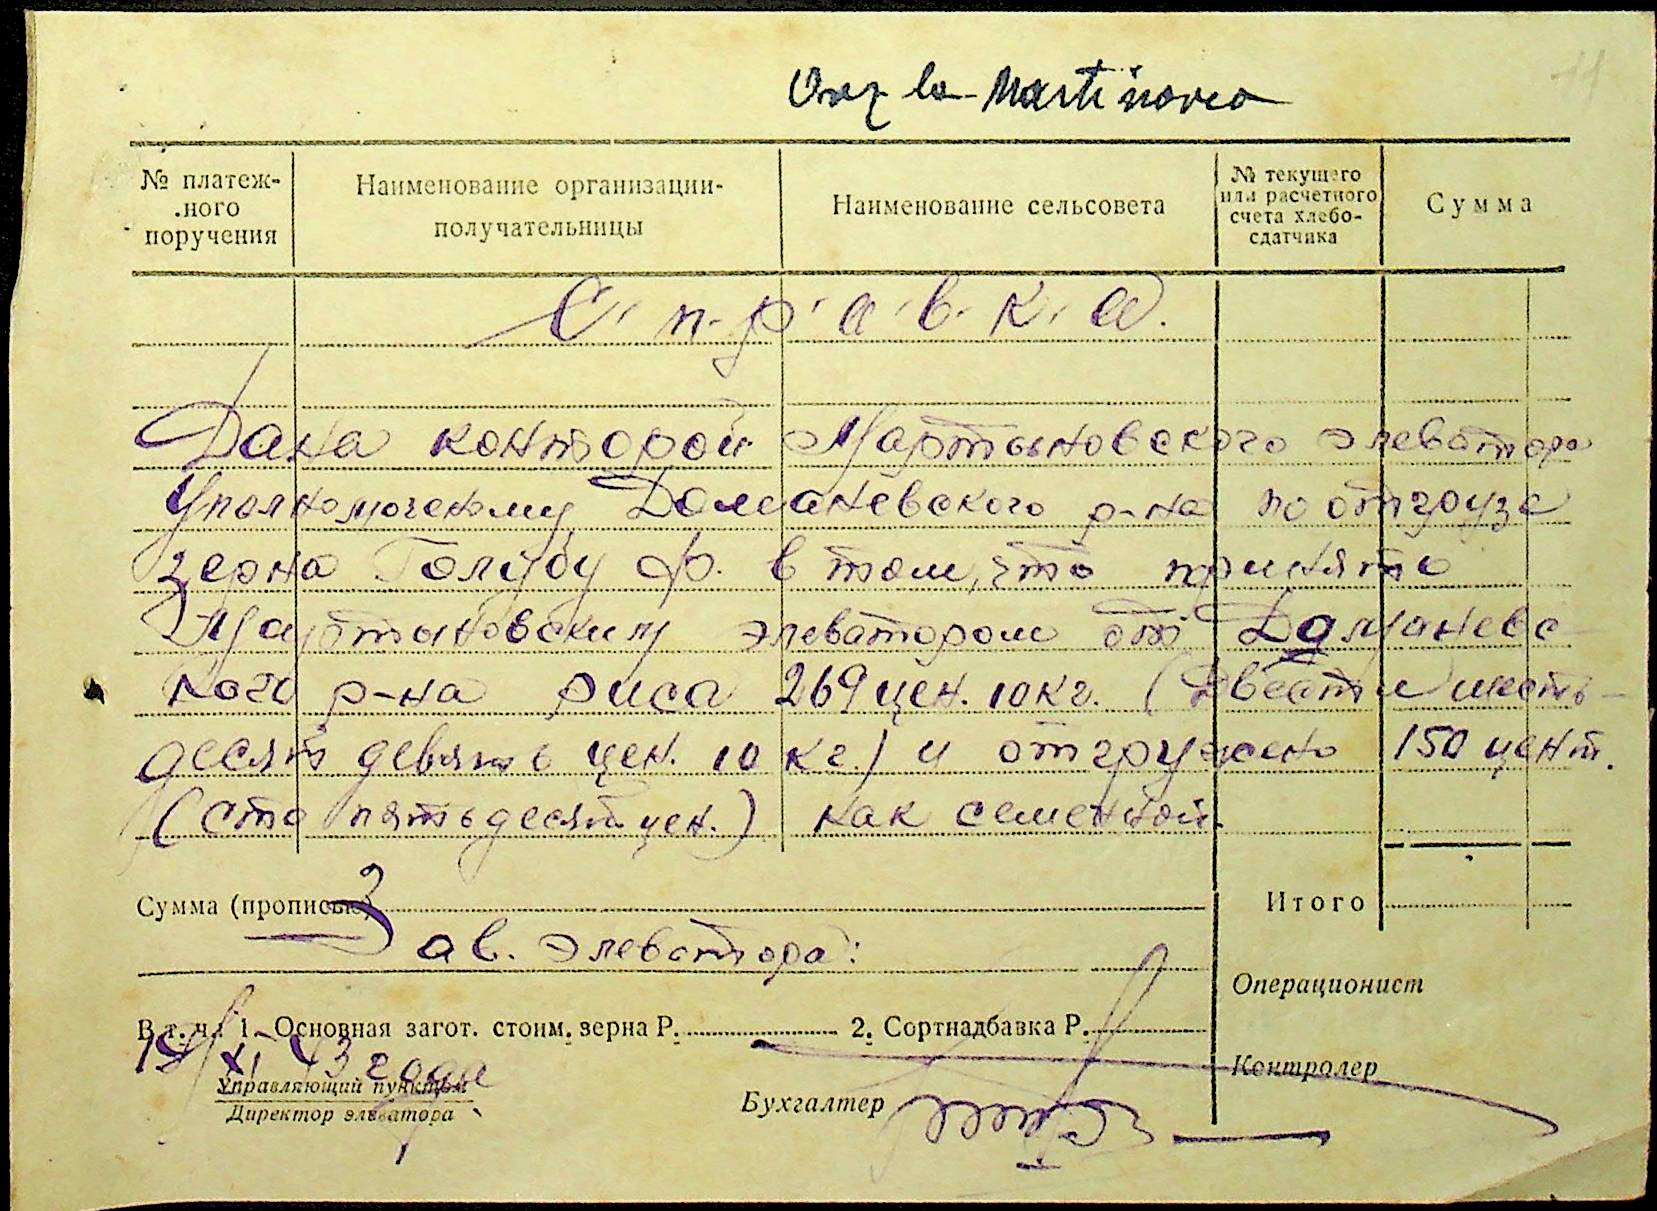 Orz la Martinovca
11
№ платеж-
ного
поручения
Наименование организации-
получательницы
Наименование сельсовета
№ текущего
или расчетного
счета хлебо-
сдатчика
Сумма
С п р а в к а.
Дана конторой Мартыновского элеватора
Уполномоченому Доманевского р-на по отгрузе
зерна Голубу Ф. в том, что принято
Мартыновским элеватором от Доманевс
кого р-на риса 269 цен. 10 кг. (Двести шесть-
десят девять цен. 10 кг.) и отгружено 150 цент.
(сто пятьдесят цен.) как семенной.
Сумма (прописью)
Итого
Зав. элеватора:
Операционист
В т. ч.: 1. Основная загот. стоим. зерна Р. 2. Сортнадбавка Р.
19/XI 43 года
Контролер
Управляющий пунктом
Директор элеватора
Бухгалтер